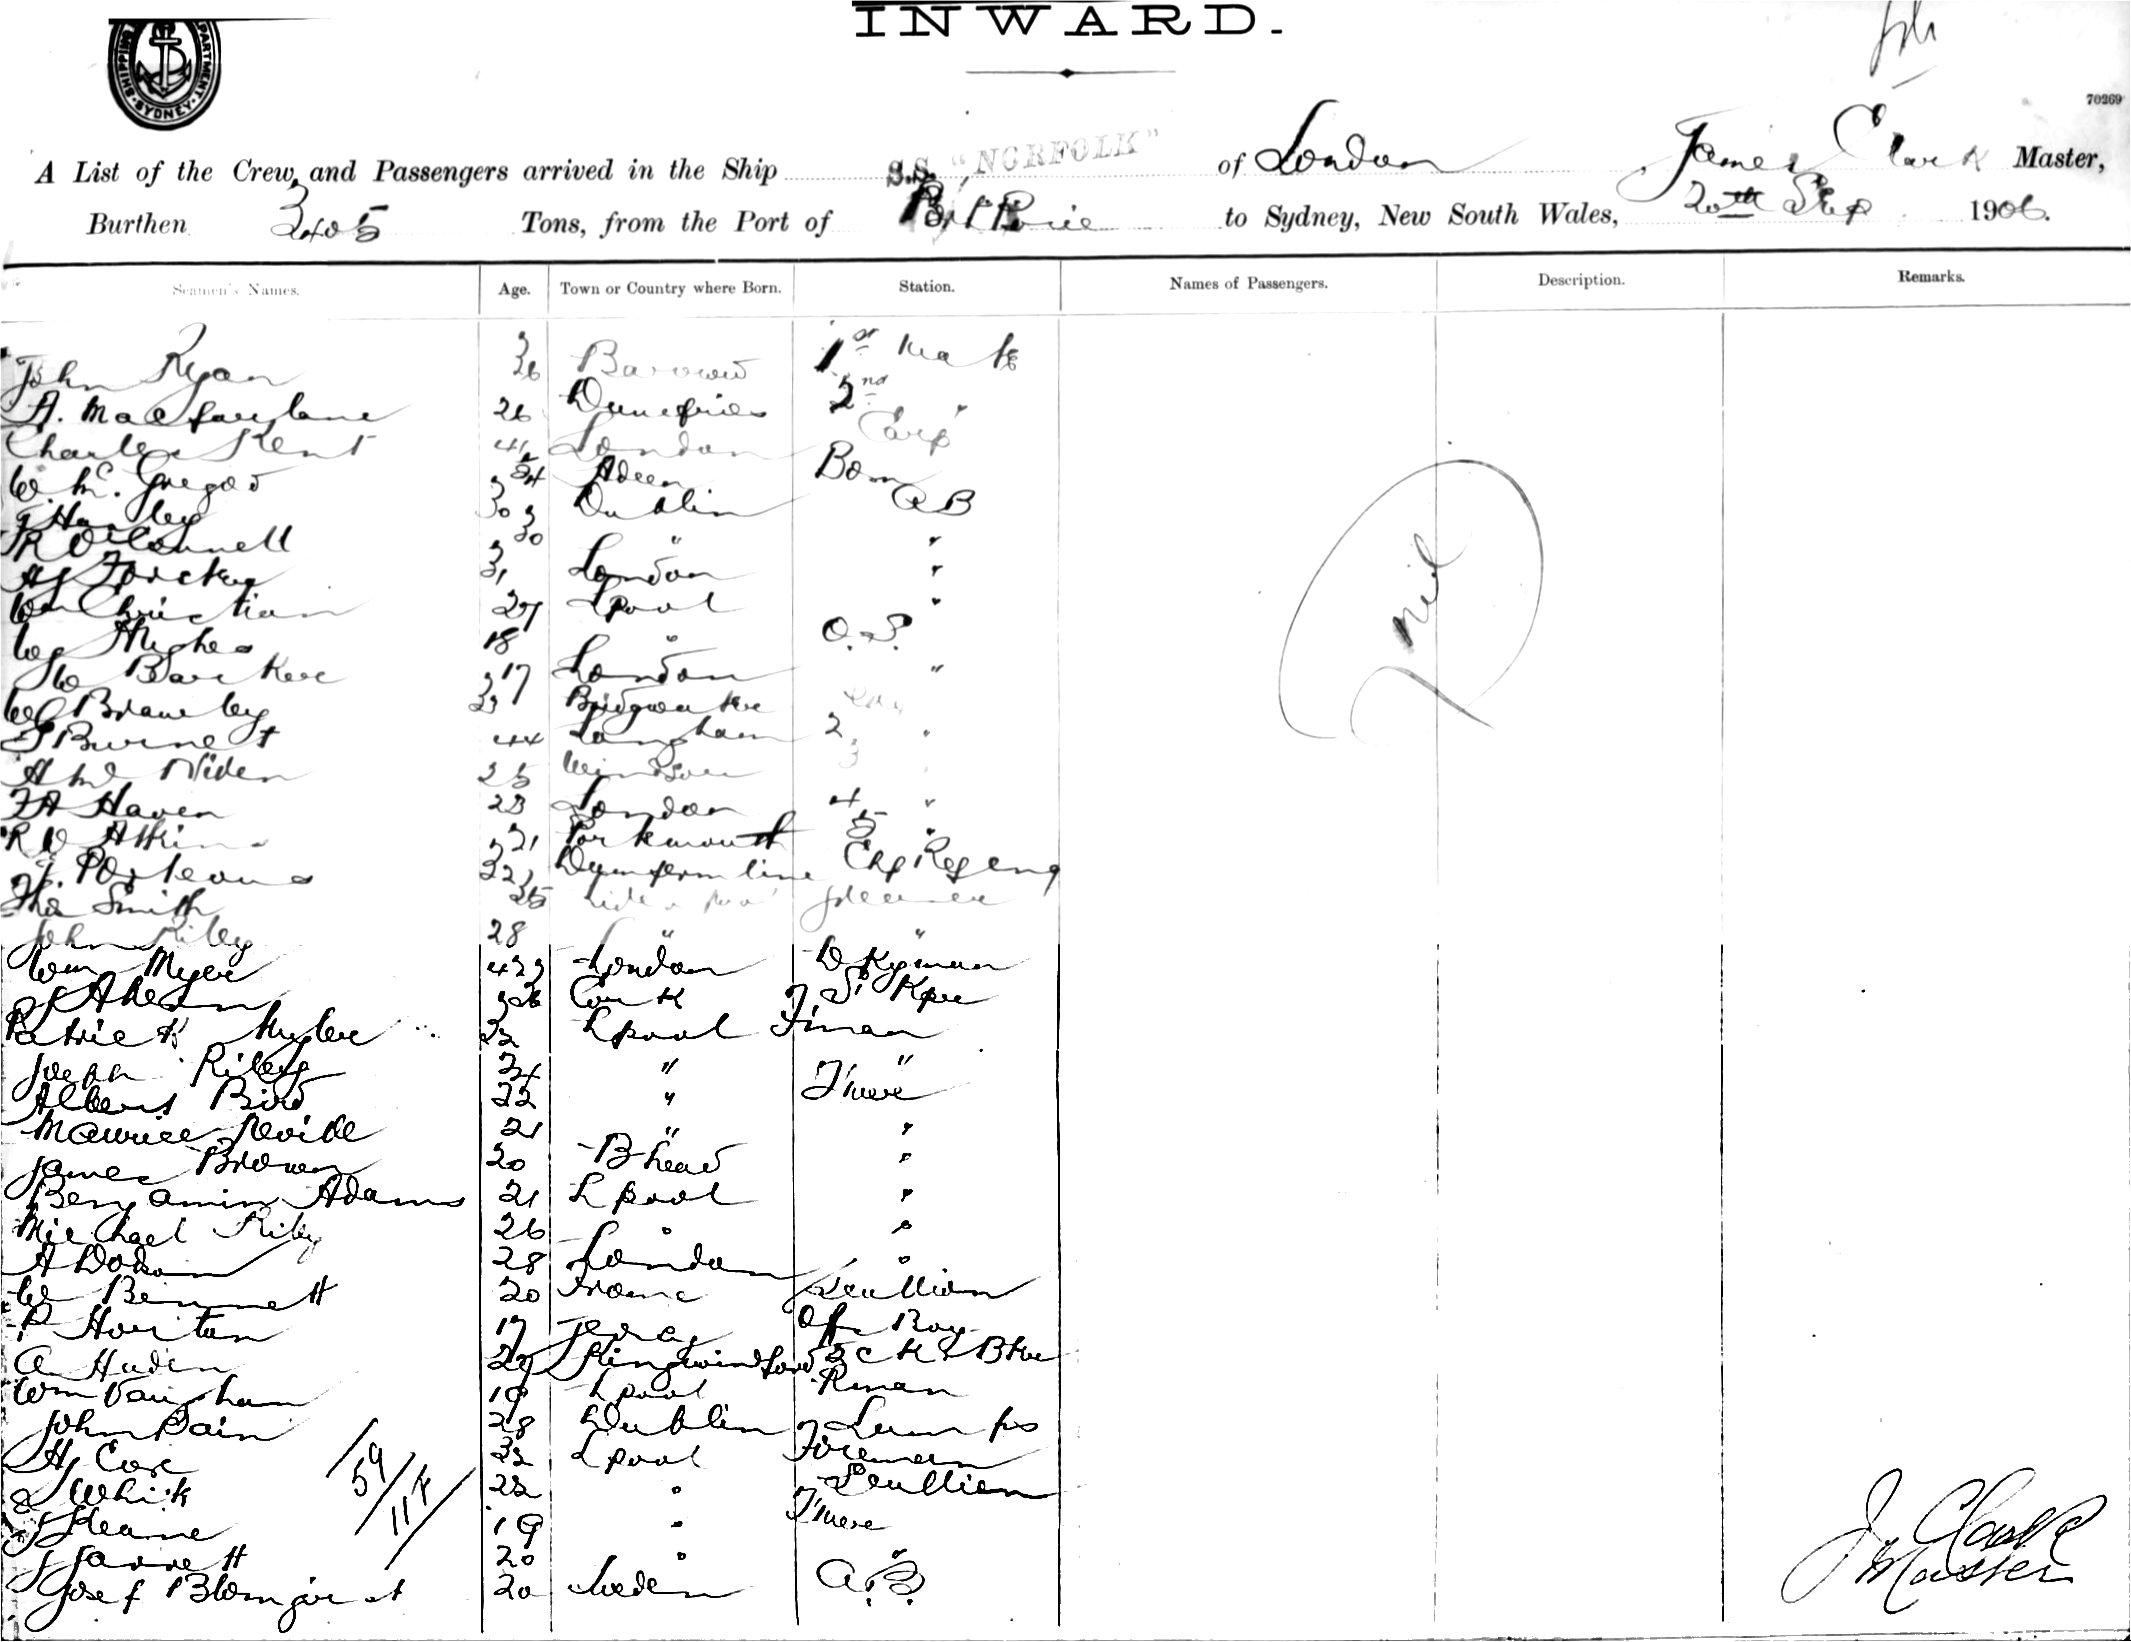 INWARD.
SHIPPING DEPARTMENT SYDNEY
70269
A List of the Crew and Passengers arrived in the Ship S.S. "NORFOLK" of London James Clark Master,
Burthen 3405 Tons, from the Port of Port Pirie to Sydney, New South Wales, 20th Sep 1906.
Seamen's Names. Age. Town or Country where Born. Station. Names of Passengers. Description. Remarks.
John Ryan 36 Barrow 1st Mate
A. Macfarlane 26 Dumfries 2nd "
Charles Kent London Carp
W. Mc. Gregor Bom
Hanley 30 Dublin AB
R OConnell 30 " "
31 London "
Wm Christian 27 Lpool "
Hughes 18 " O.S.
W Barker 17 London "
Bramley Bridgwater
Burnett 44 Langham 2 "
25 Windsor 3 "
Haven 23 London 4 "
R W Atkins 21 Portsmouth 5 "
J. Porteous 32 Dumfermline Chf Ref Eng
Tho Smith 35 Liverpool Greaser
John Riley 28 " "
Wm Myer London Dkyman
Ahern Cork
Patrick 32 Lpool F'man
Joseph Riley 34 " "
Albert Bird 22 " T'mer
Maurice Neville 21 " "
James Brown 20 B-head "
Benjamin Adams 21 Lpool "
Michael Riley 26 " "
A Dobson 28 London "
W Bennett 20 Frome Scullion
P Hourtan 17 Offs Boy
A Haden 29 Kingswinford
Wm Vaughan 19 Lpool
John Bain 28 Dublin Lamps
H Cox 32 Lpool Foreman
22 " Scullion
Keane 19 " T'mer
J Jarrett 20 " "
Josef 20 A.B.
nil
59
117
J Clark
Master